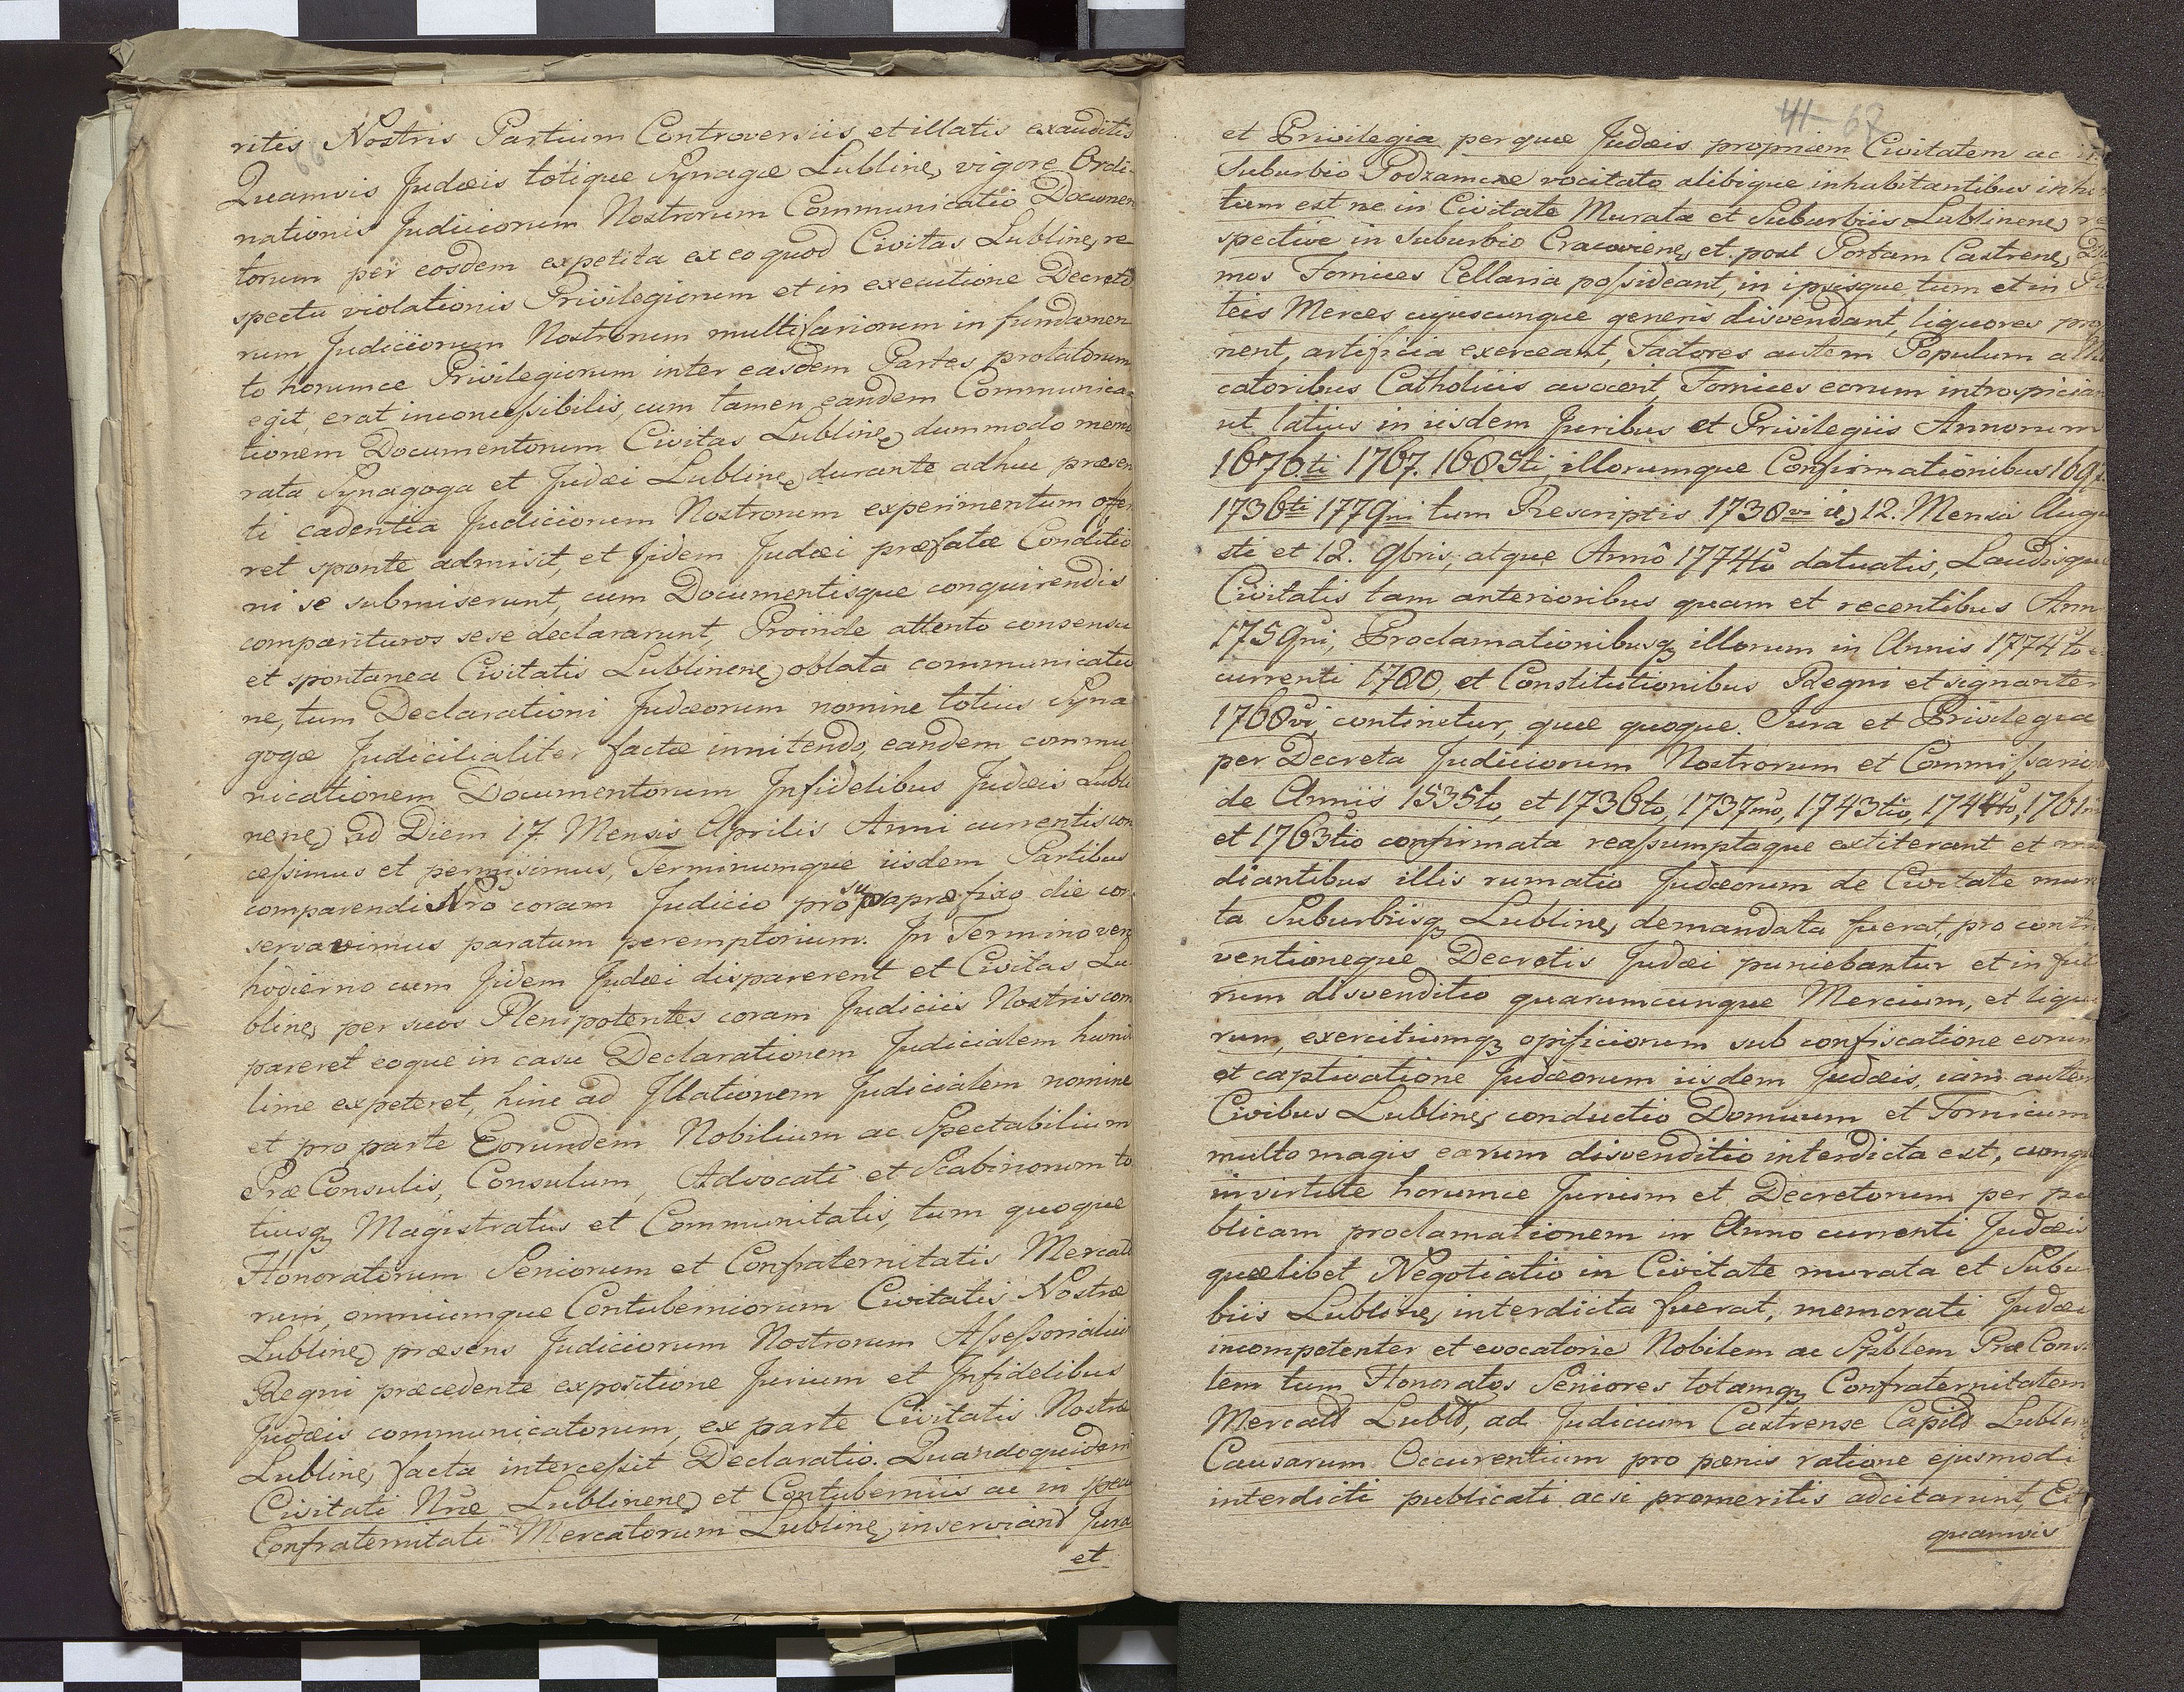 66
ritis Nostris Partium Controversiis et illatis exauditis
Quamvis Judæis totique Synagæ Lubline, vigore Ordi-
nationis Judiciorum Nostrorum Communicatio Documen
torum per eosdem expetita ex eo quod Civitas Lubline, re
spectu violationis Privilegiorum et in executione Decreto
rum Judiciorum Nostrorum multifariorum in fundamen
to horumce Privilegiorum inter easdem Partes prolatorum
egit, erat inconcessibilis, cum tamen eandem Communica-
tionem Documentorum Civitas Lubline, dummodo memo
rata Synagoga et Judæi Lubline, durante adhuc præsen
ti cadentia Judiciorum Nostrorum experimentum offer
ret sponte admisit, et Jidem Judæi præfatæ Conditio
ni se submiserunt, cum Documentisque conquirendis
comparituros sese declararunt, Proinde attento consensu
et spontanea Civitatis Lublinene, oblata communicatio
ne, tum Declarationi Judæorum nomine totius Syna
gogæ Judicilialiter factæ innitendo, eandem commu
nicationem Documentorum Infidelibus Judæis Lubli
nene, ad Diem 17 Mensis Aprilis Anni currentis con
cessimus et permisimus, Terminumque iisdem Partibus
comparendi Nro coram Judicio pro suprapræfixo die con
servavimus paratum peremptorium. In Termino vero
hodierno cum Jidem Judæi disparerent et Civitas Lu
bline, per suos Plenipotentes coram Judiciis Nostris com
pareret eoque in casu Declarationem Judicialem humil
lime expeteret, hinc ad Illationem Judicialem nomine
et pro parte Eorundem Nobilium ac Spectabilium
Præ Consulis, Consulum, Advocati et Scabinorum to
tiusq Magistratus et Communitatis, tum quoque
Honoratorum Seniorum et Confraternitatis Mercato
rum, omniumque Contuberniorum Civitatis Nostræ
Lubline, præsens Judiciorum Nostrorum Assessorialiu
Regni præcedente expositione Jurium et Infidelibus
Judæis communicatorum, ex parte Civitatis Nostræ
Lubline, facta intercessit Declaratio. Quandoquidem
Civitati Nræ Lublinene, et Contuberniis ac in pecu
Confraternitati Mercatorum Lubline, inserviant Jura
et
41 67
et Privilegia perquæ Judæis propriem Civitatem ac in
Suburbio Podzamcze vocitato alibique inhabitantibus inhi
tum est ne in Civitate Murata et Suburbiis Lublinene, re
spective in Suburbio Cracoviene, et post Portam Castrene, Do
mos Fornices Cellaria possideant, in ipsisque tum et in Pla
teis Merces cujuscunque generis disvendant, liquores pro
nent, artificia exerceant, Factores autem Populum a Mer
catoribus Catholicis avocent, Fornices eorum introspiciant
ut latius in iisdem Juribus et Privilegiis Annorum
1676.ti 1767. 1685ti, illorumque Confirmationibus 169
1736ti 1779ni tum Rescriptis 1738vi ie, 12. Mensis Augu
sti et 12. 9bris, atque Annô 1774to datuatis, Laudisque
Civitatis tam anterioribus quam et recentibus Anni
1759ni, Proclamationibusq illorum in Annis 1774to
currenti 1780, et Constitutionibus Regni et signanter
1768vi, continetur, quæ quoque Jura et Privilegia
per Decreta Judiciorum Nostrorum et Commissario
de Annis 1535to, et 1736to, 1737mo, 1743tio, 1744to, 1761
et 1763tio confirmata reassumptaque extiterant et me
diantibus illis rumatio Judæorum de Civitate mura
ta Suburbiisq Lubline, demandata fuerat, pro contra
ventioneque Decretis Judæi puniebantur et in futu
rum disvenditio quarumcunque Mercium, et liquo
rum, exercitiumq opificiorum sub confiscatione eorum
et captivatione Judæorum iisdem Judæis, iam autem
Civibus Lubline, conductio Domuum et Fornicum
multo magis earum disvenditio interdicta est, cumq
in virtute horumce Jurium et Decretorum per pu
blicam proclamationem in Anno currenti Judæis
quælibet Negotiatio in Civitate murata et Subur
biis Lubline, interdicta fuerat, memorati Judæi
incompetenter et evocatorie Nobilem ac Spblem Præ Consu
lem tum Honoratos Seniores totamq Confraternitatem
Mercald Lubld, ad Judicium Castrense Capild Lublin
Causarum Occurentium pro pænis ratione ejusmodi
interdicti publicati acsi promeritis adcitarunt, Et
quamvis